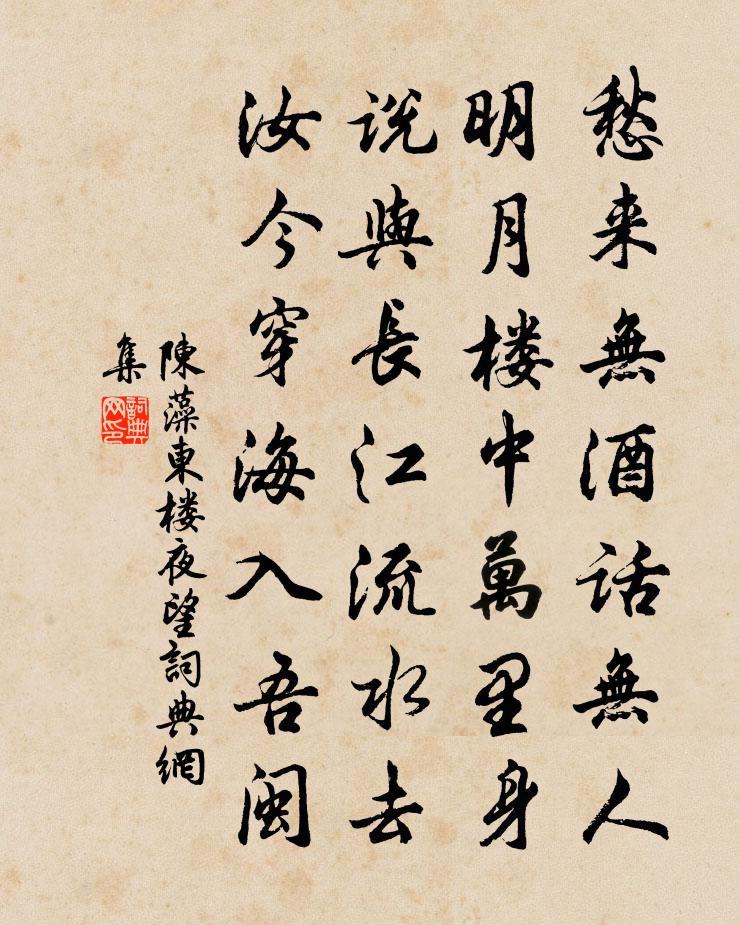 愁来無酒話無人
明月楼中萬里身
説與長江流水去
汝今穿海入吾閩
陳藻東楼夜望詞典網
集
詞典
网印